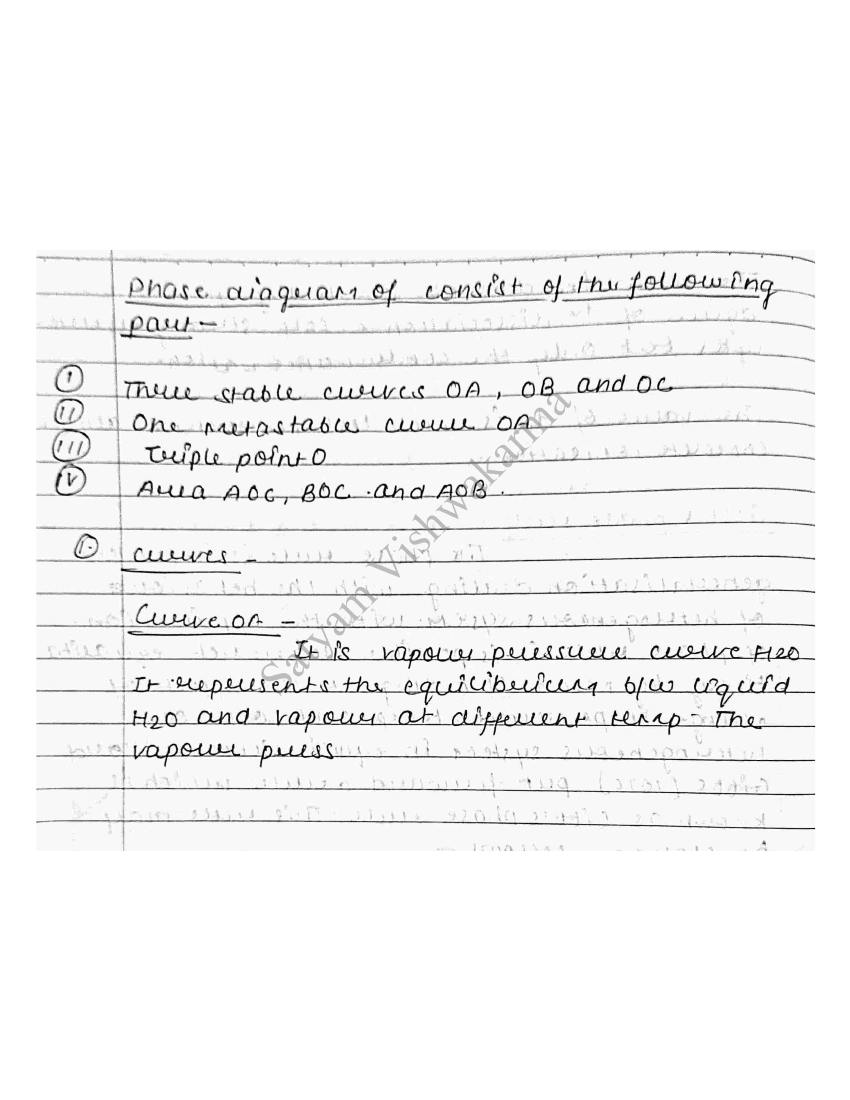 Phase diagram of consist of the following
part -
(I) Three stable curves OA, OB and OC
(II) One metastable curve OA
(III) Triple point O
(IV) Area AOC, BOC and AOB.
(1) curves -
Curve OA -
It is vapour pressure curve H2O
It represents the equilibrium b/w liquid
H2O and vapour at different temp - The
vapour press
Satyam Vishwakarma